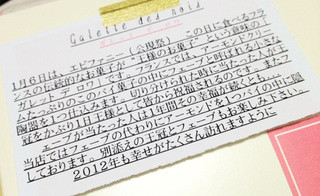 Galette des Rois
1月6日は、エピファニー（公現祭）。この日に食べるフラ
ンスの伝統的なお菓子が“王様のお菓子”という意味の「
ガレット・デ・ロワ」です。フランスでは、アーモンドクリー
ムたっぷりのこのパイ菓子の中にフェーブと呼ばれる小さな
陶器を1つ仕込みます。切り分けられた時に当たった人が王
冠をかぶり1日王様として皆から祝福されるのです。またフ
ェーブが当たった人は1年間その幸福が続くとも…。
当店ではフェーブの代わりにアーモンドを1つパイの中に隠
しております。別添えの王冠とフェーブもお楽しみ下さい。
2012年も幸せがたくさん訪れますように